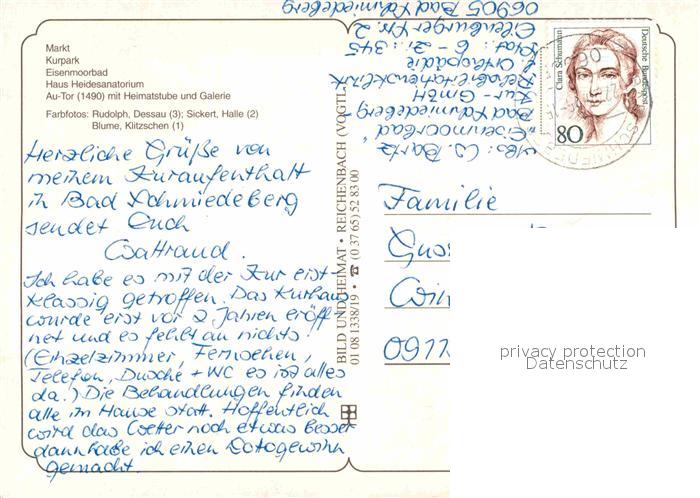 Markt
Kurpark
Eisenmoorbad
Haus Heidesanatorium
Au-Tor (1490) mit Heimatstube und Galerie
Farbfotos: Rudolph, Dessau (3); Sickert, Halle (2)
Blume, Klitzschen (1)
Herzliche Grüße von
meinem Kuraufenthalt
in Bad Schmiedeberg
sendet Euch
Waltraud.
Ich habe es mit der Kur erst-
klassig getroffen. Das Kurhaus
wurde erst vor 2 Jahren eröff-
net und es fehlt an nichts!
(Einzelzimmer, Fernsehen,
Telefon, Dusche + WC es ist alles
da.) Die Behandlungen finden
alle im Hause statt. Hoffentlich
wird das Wetter noch etwas besser
dann habe ich einen Lotogewinn
gemacht.
BILD UND HEIMAT • REICHENBACH (VOGTL)
01 08 1338/19 • ☎ (0 37 65) 52 83 00
Abs: W. Bartz
"Eisenmoorbad
Bad Schmiedeberg
Kur-GmbH
Rehabilitationsklinik
f. Orthopädie
Stat: 6 - Zi: 345
Eilenburger Str. 2
06905 Bad Schmiedeberg
Clara Schumann
Deutsche Bundespost
80
Familie
0911
privacy protection
Datenschutz